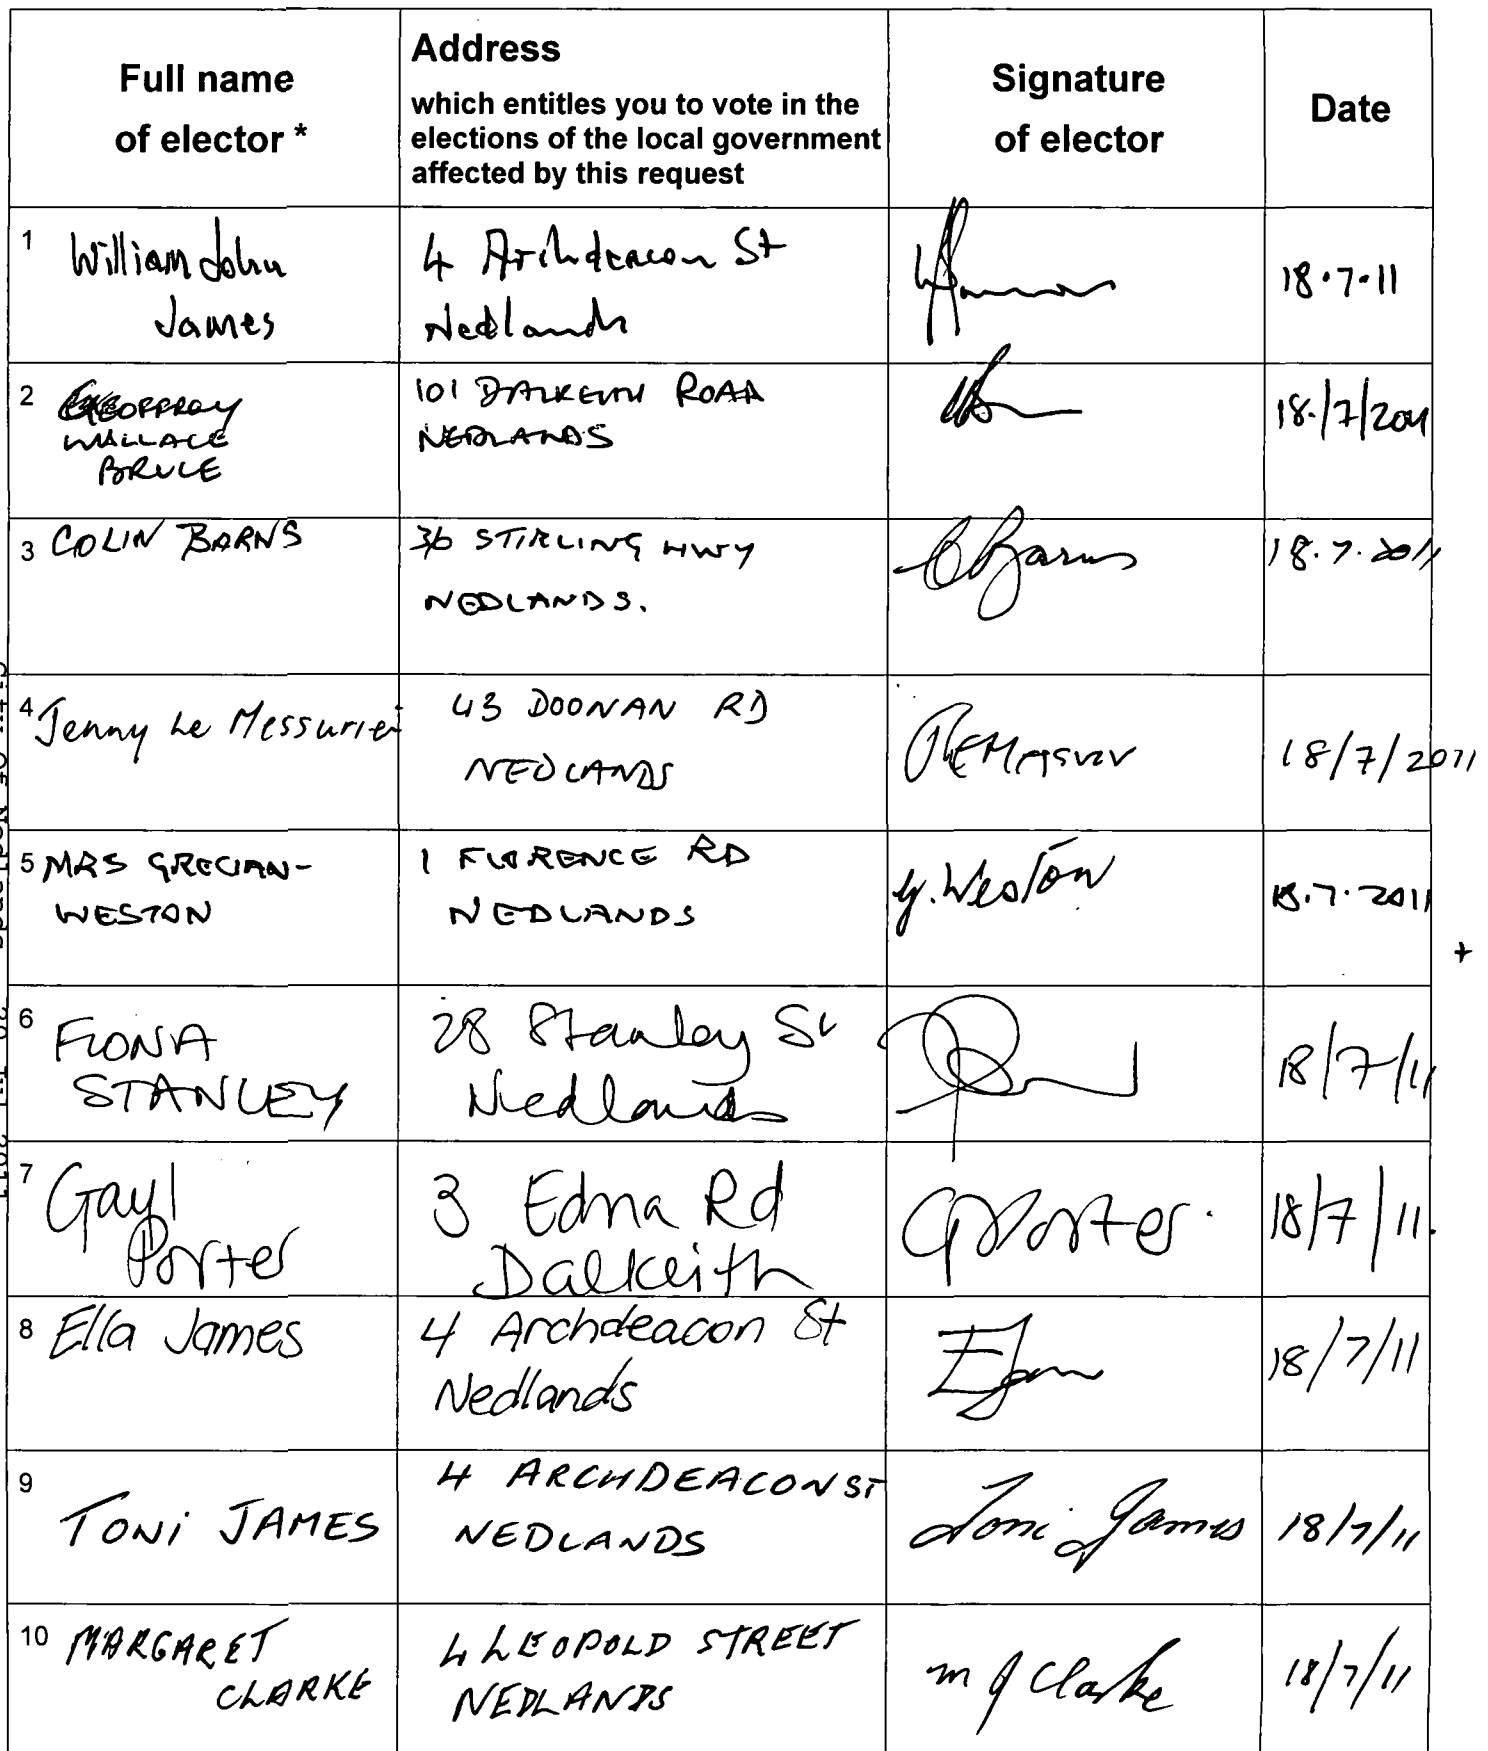 Full name
of elector *
Address
which entitles you to vote in the
elections of the local government
affected by this request
Signature
of elector
Date
1 William John
James
4 Archdeacon St
Nedlands
18.7.11
2 GEOFFREY
WALLACE
BRUCE
101 DALKEITH ROAD
NEDLANDS
18./7/2011
3 COLIN BARNS
36 STIRLING HWY
NEDLANDS.
C Barns
18.7.2011
4 Jenny Le Messurier
43 DOONAN RD
NEDLANDS
18/7/2011
5 MRS GRECIAN-
WESTON
1 FLORENCE RD
NEDLANDS
G. Weston
18.7.2011
+
6 FIONA
STANLEY
28 Stanley St
Nedlands
18/7/11
7 Gayl
Porter
3 Edna Rd
Dalkeith
G Porter.
18/7/11.
8 Ella James
4 Archdeacon St
Nedlands
18/7/11
9 TONI JAMES
4 ARCHDEACON ST
NEDLANDS
Toni James
18/7/11
10 MARGARET
CLARKE
4 LEOPOLD STREET
NEDLANDS
M J Clarke
18/7/11